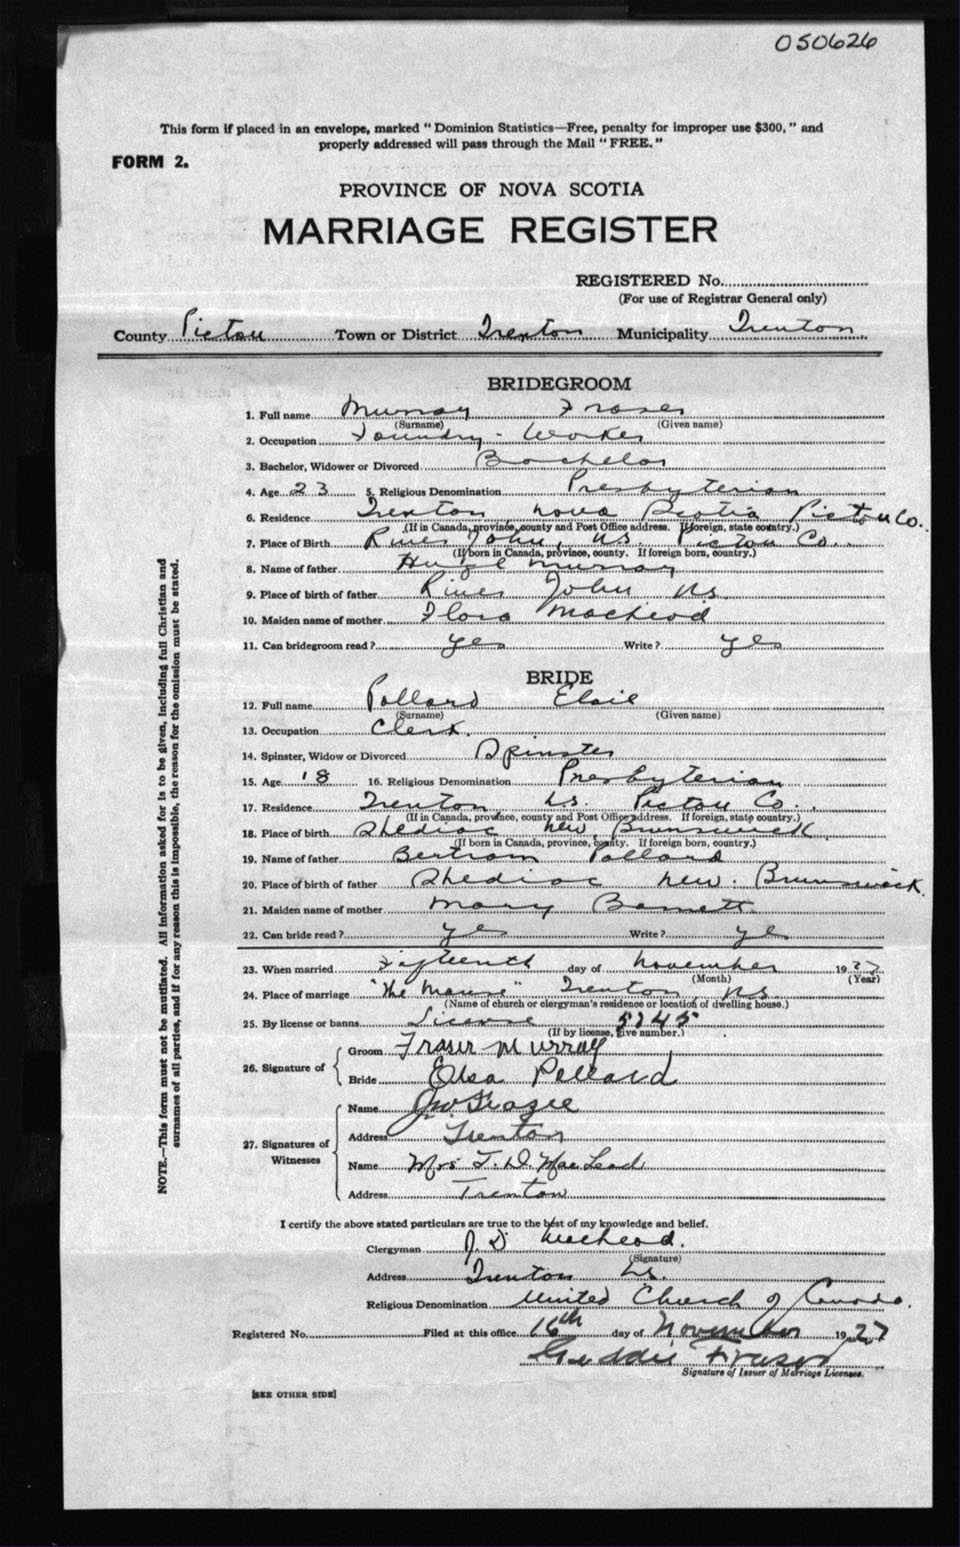 050626
This form if placed in an envelope, marked "Dominion Statistics—Free, penalty for improper use $300," and
properly addressed will pass through the Mail "FREE."
FORM 2.
PROVINCE OF NOVA SCOTIA
MARRIAGE REGISTER
REGISTERED No.
(For use of Registrar General only)
County Pictou Town or District Trenton Municipality Trenton
BRIDEGROOM
1. Full name Murray Fraser
(Surname) (Given name)
2. Occupation Foundry-Worker
3. Bachelor, Widower or Divorced Bachelor
4. Age 23 5. Religious Denomination Presbyterian
6. Residence Trenton Nova Scotia Pictou Co.
(If in Canada, province, county and Post Office address. If foreign, state country.)
7. Place of Birth River John, N.S. Pictou Co.
(If born in Canada, province, county. If foreign born, country.)
8. Name of father Hugh Murray
9. Place of birth of father River John N.S.
10. Maiden name of mother Flora MacLeod
11. Can bridegroom read? yes Write? yes
BRIDE
12. Full name Pollard Elsie
(Surname) (Given name)
13. Occupation Clerk.
14. Spinster, Widow or Divorced Spinster
15. Age 18 16. Religious Denomination Presbyterian
17. Residence Trenton N.S. Pictou Co.
(If in Canada, province, county and Post Office address. If foreign, state country.)
18. Place of birth Shediac New Brunswick
(If born in Canada, province, county. If foreign born, country.)
19. Name of father Bertram Pollard
20. Place of birth of father Shediac New. Brunswick.
21. Maiden name of mother Mary Barnett
22. Can bride read? yes Write? yes
23. When married Fifteenth day of November 1927
(Month) (Year)
24. Place of marriage "The Manse" Trenton N.S.
(Name of church or clergyman's residence or location of dwelling house.)
25. By license or banns License 5745
(If by license, give number.)
26. Signature of
Groom Fraser Murray
Bride Elsa Pollard
27. Signatures of Witnesses
Name
Address Trenton
Name Mrs J. D. MacLeod
Address Trenton
I certify the above stated particulars are true to the best of my knowledge and belief.
Clergyman J. D. MacLeod.
(Signature)
Address Trenton N.S.
Religious Denomination United Church of Canada.
Registered No. Filed at this office 16th day of November 1927
Geddie Fraser
Signature of Issuer of Marriage Licenses.
[SEE OTHER SIDE]
NOTE.—This form must not be mutilated. All information asked for is to be given, including full Christian and
surnames of all parties, and if for any reason this is impossible, the reason for the omission must be stated.